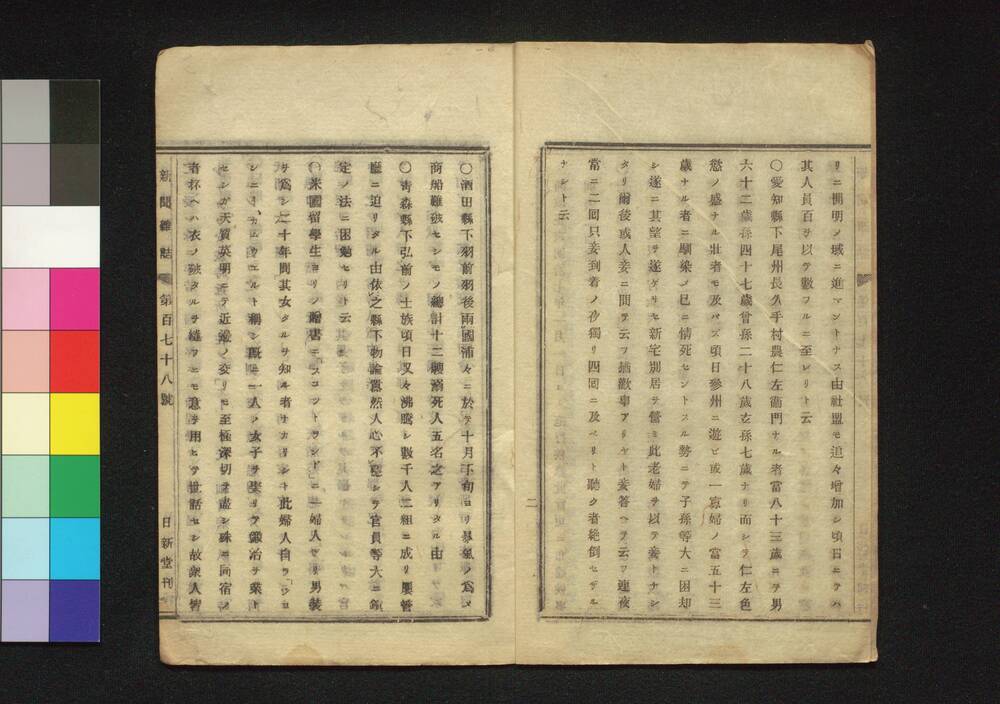 リニ開明ノ域ニ進マントナス由社盟モ追々増加シ頃日ニテハ
其人員百ヲ以テ數フルニ至レリト云
〇愛知縣下尾州長久手村農仁左衞門ナル者當八十三歳ニテ男
六十二歳孫四十七歳曾孫二十八歳玄孫七歳ナリ而シテ仁左色
慾ノ盛ナル壯者モ及バズ頃日參州ニ遊ビ或一寡婦ノ當五十三
歳ナル者ニ馴染ノ已ニ情死セントスル勢ニテ子孫等大ニ困却
シ遂ニ其望ヲ遂ゲサセ新宅別居ヲ營ミ此老婦ヲ以テ妾トナシ
タリ爾後或人妾ニ問テ云フ猶歡事アリヤト妾答ヘテ云フ連夜
當ニ二囘只妾到着ノ夜獨リ四囘ニ及ベリト聽ク者絶倒セザル
ナシト云
二
〇酒田縣下羽前羽後兩國浦々ニ於テ十月下旬ヨリ暴風ノ爲メ
商船難破セシモノ總計十二艘溺死人五名之アリタル由
〇青森縣下弘前ノ士族頃日又々沸騰シ數千人二組ニ成リ屢管
廳ニ迫リタル由依之縣下物論囂然人心不穩シテ官員等大ニ鎮
定ノ法ニ困勉セリト云
〇米國留學生ヨリノ贈書ニ「スコットランド」ニ一婦人アリ男裝
ヲ爲シ二十年間其女タルヲ知ル者ナカリシキ此婦人自ラ「ジヨ
シ稱シ既ニ一人ノ女子ヲ鍛冶ヲ業ト
センガ天質英明ニテ近鄰ノ交リモ至極深切ヲ盡シ殊ニ同宿ノ
者杯ヘハ衣ノ破タルヲ縫フニモ意ヲ用ヒテ世話セシ故衆人皆
新聞雜誌 第百七十八號 日新堂刊